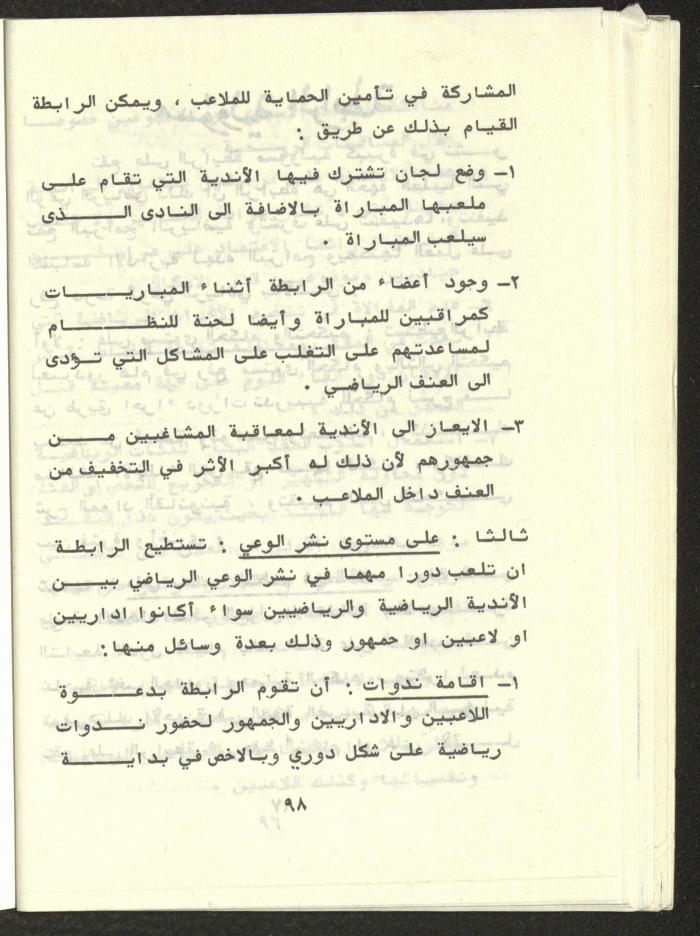 المشاركة في تأمين الحماية للملاعب ، ويمكن الرابطة
القيام بذلك عن طريق :
١- وضع لجان تشترك فيها الأندية التي تقام على
ملعبها المباراة بالاضافة الى النادى الذى
سيلعب المباراة .
٢- وجود أعضاء من الرابطة أثناء المباريات
كمراقبين للمباراة وأيضا لجنة للنظام
لمساعدتهم على التغلب على المشاكل التي تؤدى
الى العنف الرياضي .
٣- الايعاز الى الأندية لمعاقبة المشاغبين من
جمهورهم لأن ذلك له أكبر الأثر في التخفيف من
العنف داخل الملاعب .
ثالثا : على مستوى نشر الوعي : تستطيع الرابطة
ان تلعب دورا مهما في نشر الوعي الرياضي بين
الأندية الرياضية والرياضيين سواء أكانوا اداريين
او لاعبين او جمهور وذلك بعدة وسائل منها:
١- اقامة ندوات : أن تقوم الرابطة بدعوة
اللاعبين والاداريين والجمهور لحضور ندوات
رياضية على شكل دوري وبالاخص في بداية
٩٨